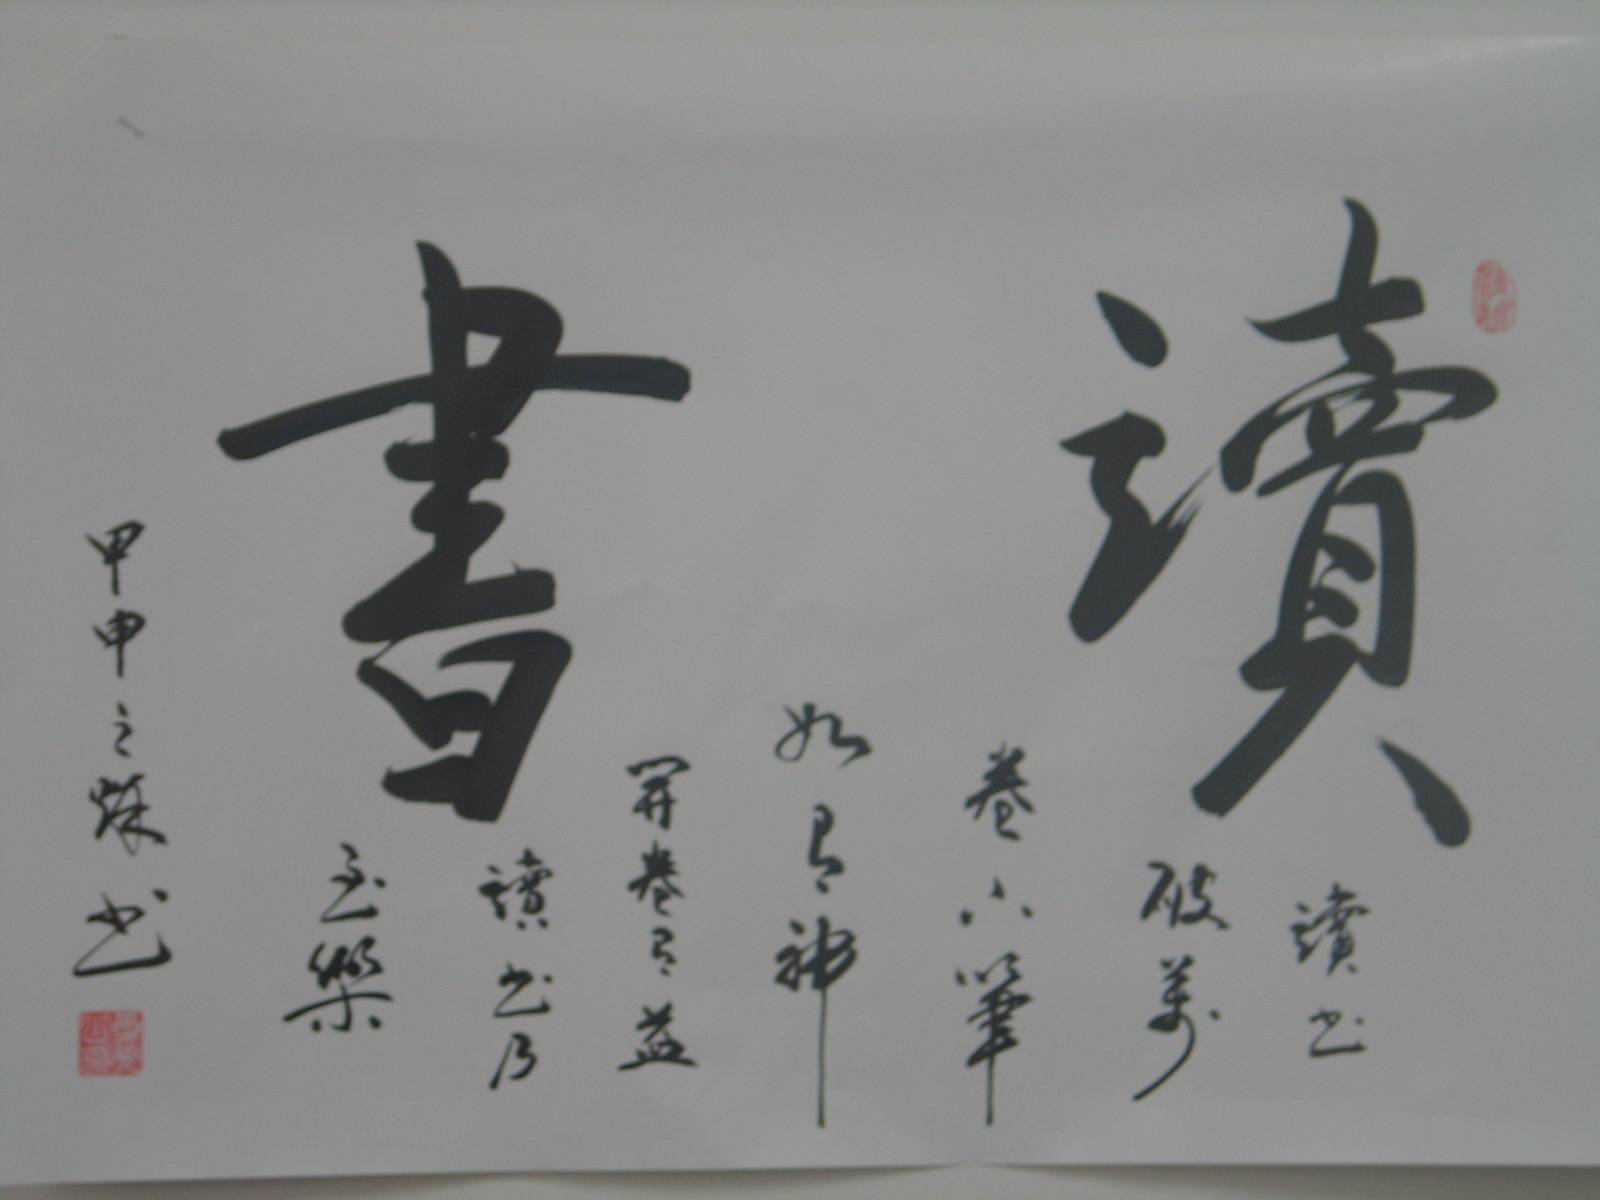 讀書
讀书
破萬
卷下筆
如有神
開卷有益
讀书乃
至樂
甲申之秋书